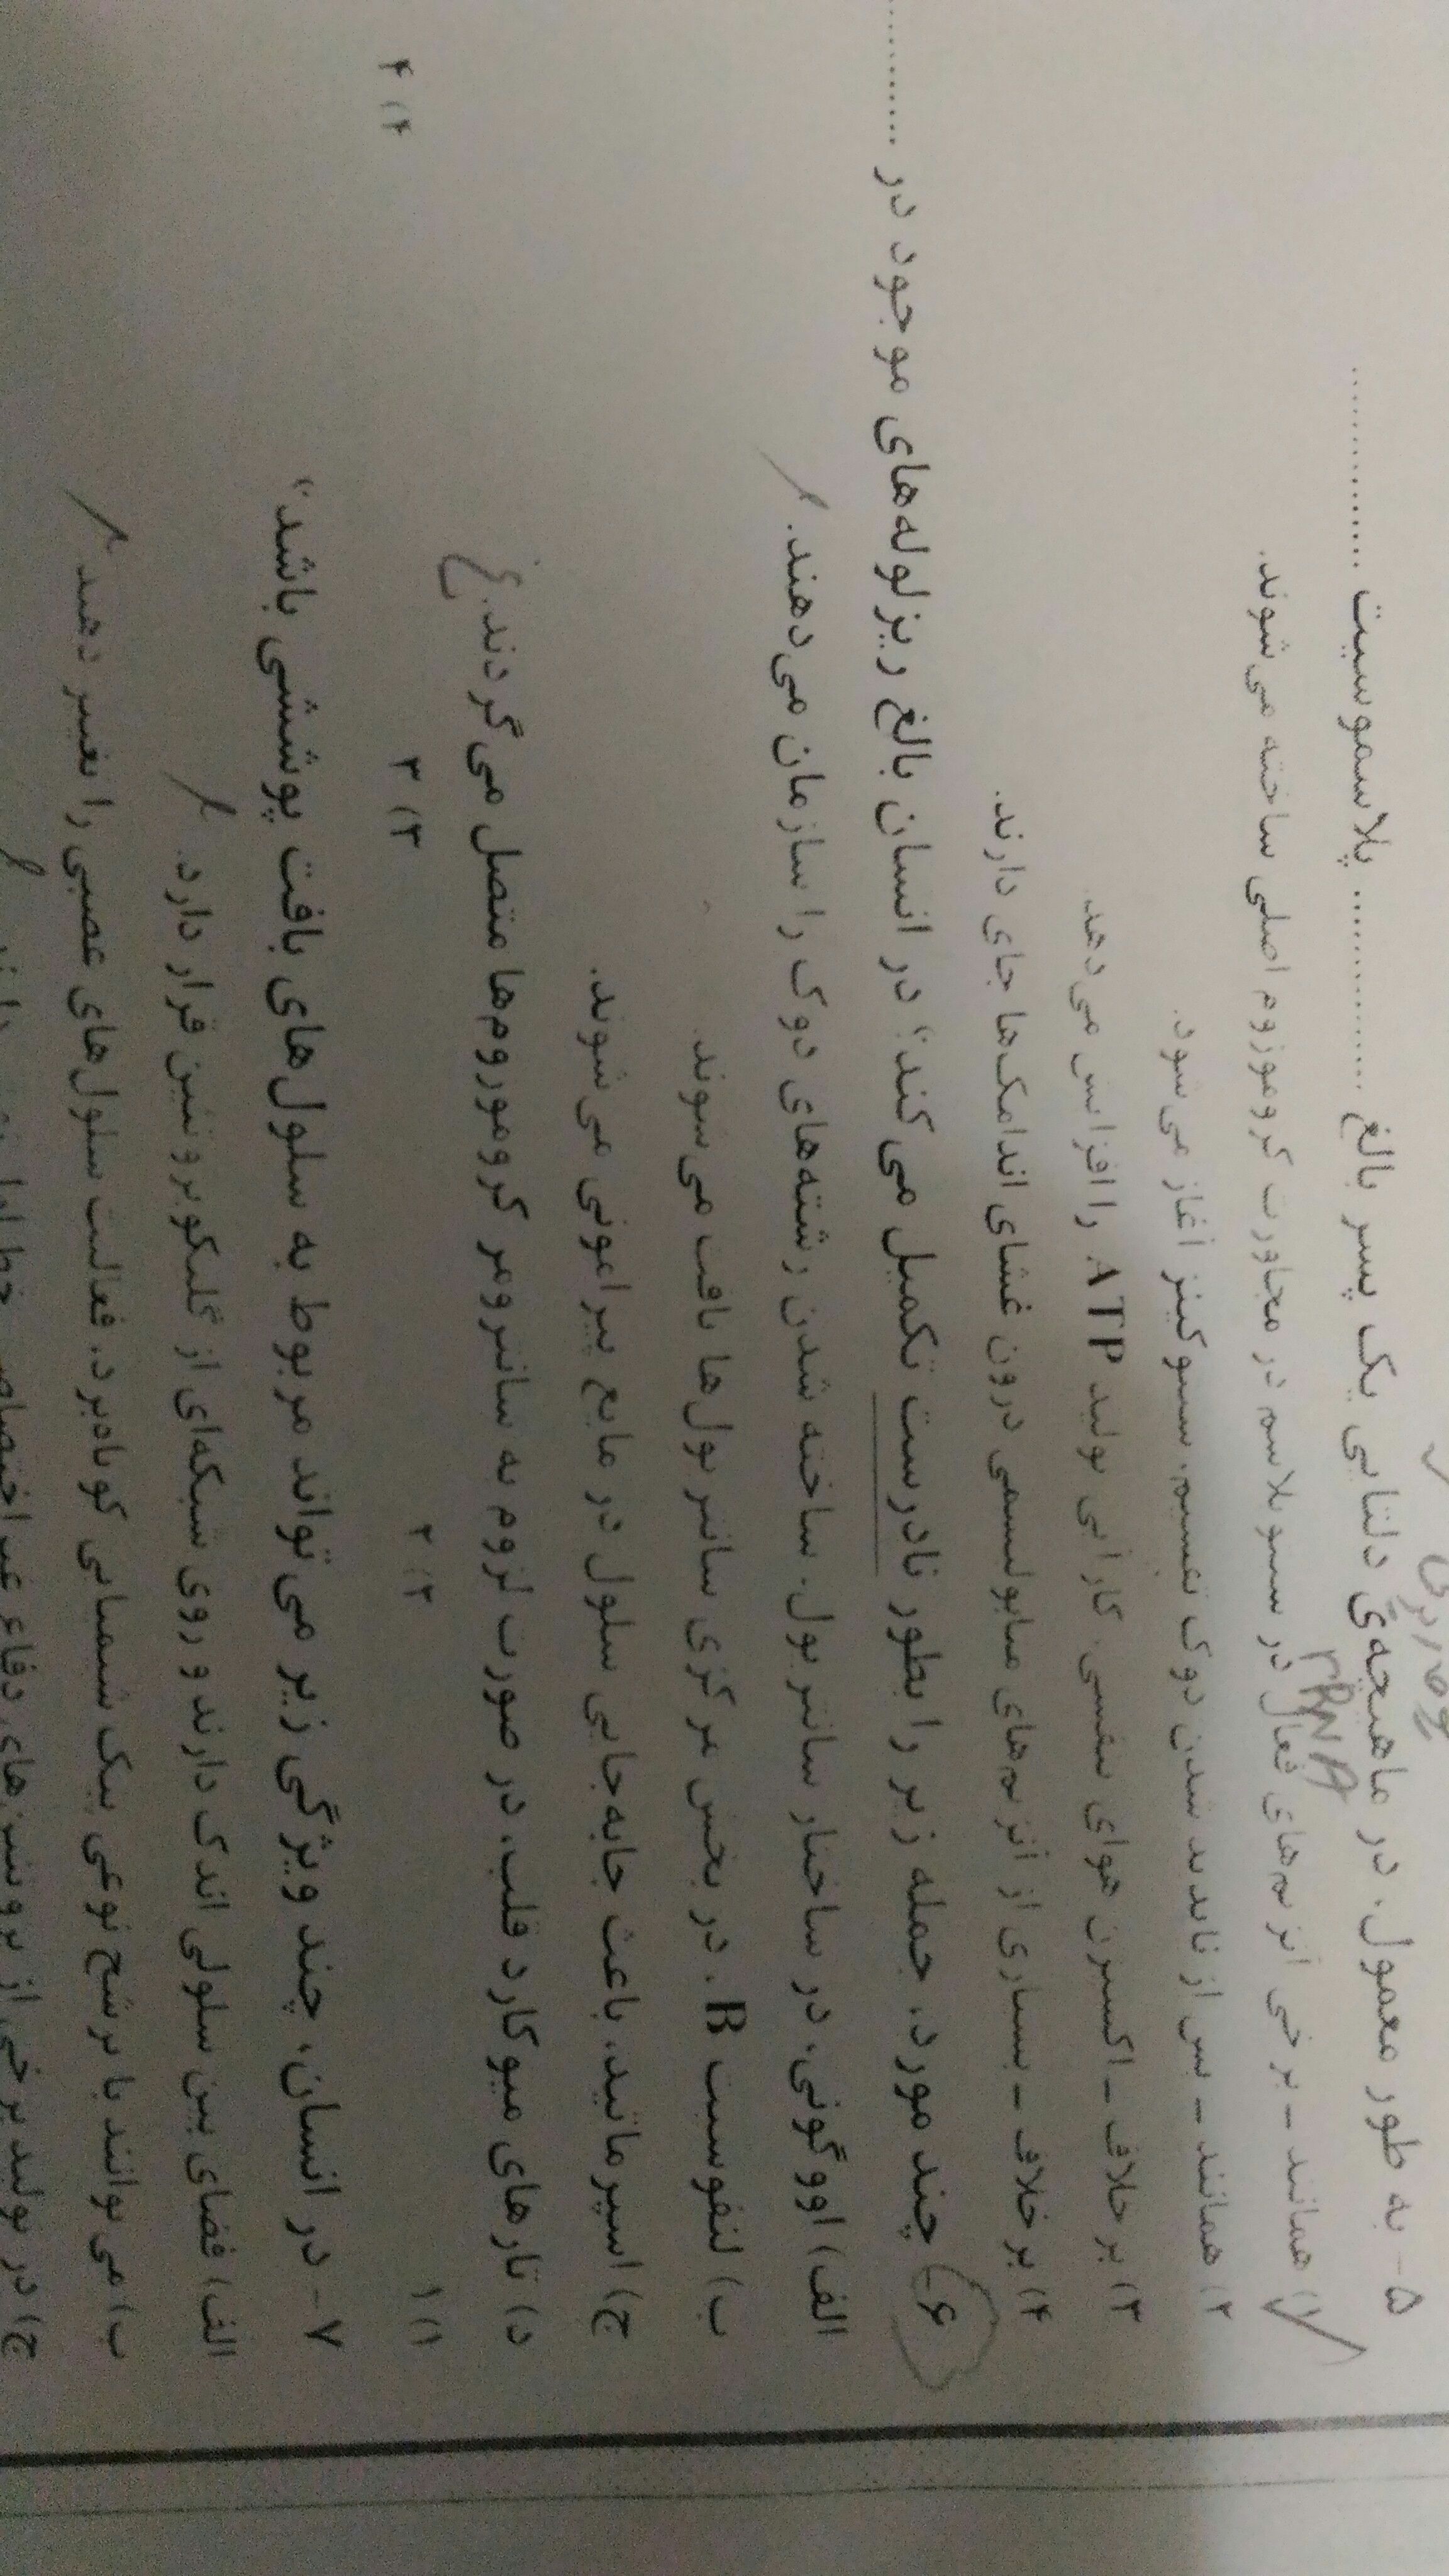 ۵- به طور معمول، در ماهیچه‌ی دلتایی یک پسر بالغ .............. پلاسموسیت ..............
rRNA
۱) همانند - برخی آنزیم‌های فعال در سیتوپلاسم در مجاورت کروموزوم اصلی ساخته می‌شوند.
۲) همانند - پس از ناپدید شدن دوک تقسیم، سیتوکینز آغاز می‌شود.
۳) برخلاف - اکسیژن هوای تنفسی، کارآیی تولید ATP را افزایش می‌دهد.
۴) برخلاف - بسیاری از آنزیم‌های متابولیسمی درون غشای اندامک‌ها جای دارند.
۶- چند مورد، جمله زیر را بطور نادرست تکمیل می‌کند؟ در انسان بالغ ریزلوله‌های موجود در ..........
الف) اووگونی، در ساختار سانتریول، ساخته شدن رشته‌های دوک را سازمان می‌دهند.
ب) لنفوسیت B، در بخش مرکزی سانتریول‌ها یافت می‌شوند.
ج) اسپرماتید، باعث جابه‌جایی سلول در مایع پیرامونی می‌شوند.
د) تارهای میوکارد قلب، در صورت لزوم به سانترومر کروموزوم‌ها متصل می‌گردند. غ
۱) ۱ ۲) ۲ ۳) ۳ ۴) ۴
۷- در انسان، چند ویژگی زیر می‌تواند مربوط به سلول‌های بافت پوششی باشد؟
الف) فضای بین سلولی اندک دارند و روی شبکه‌ای از گلیکوپروتئین قرار دارد.
ب) می‌تواند با ترشح نوعی پیک شیمیایی کوتاه‌برد، فعالیت سلول‌های عصبی را تغییر دهد.
ج) در تولید برخی از پروتئین‌های دفاع غیر اختصاصی